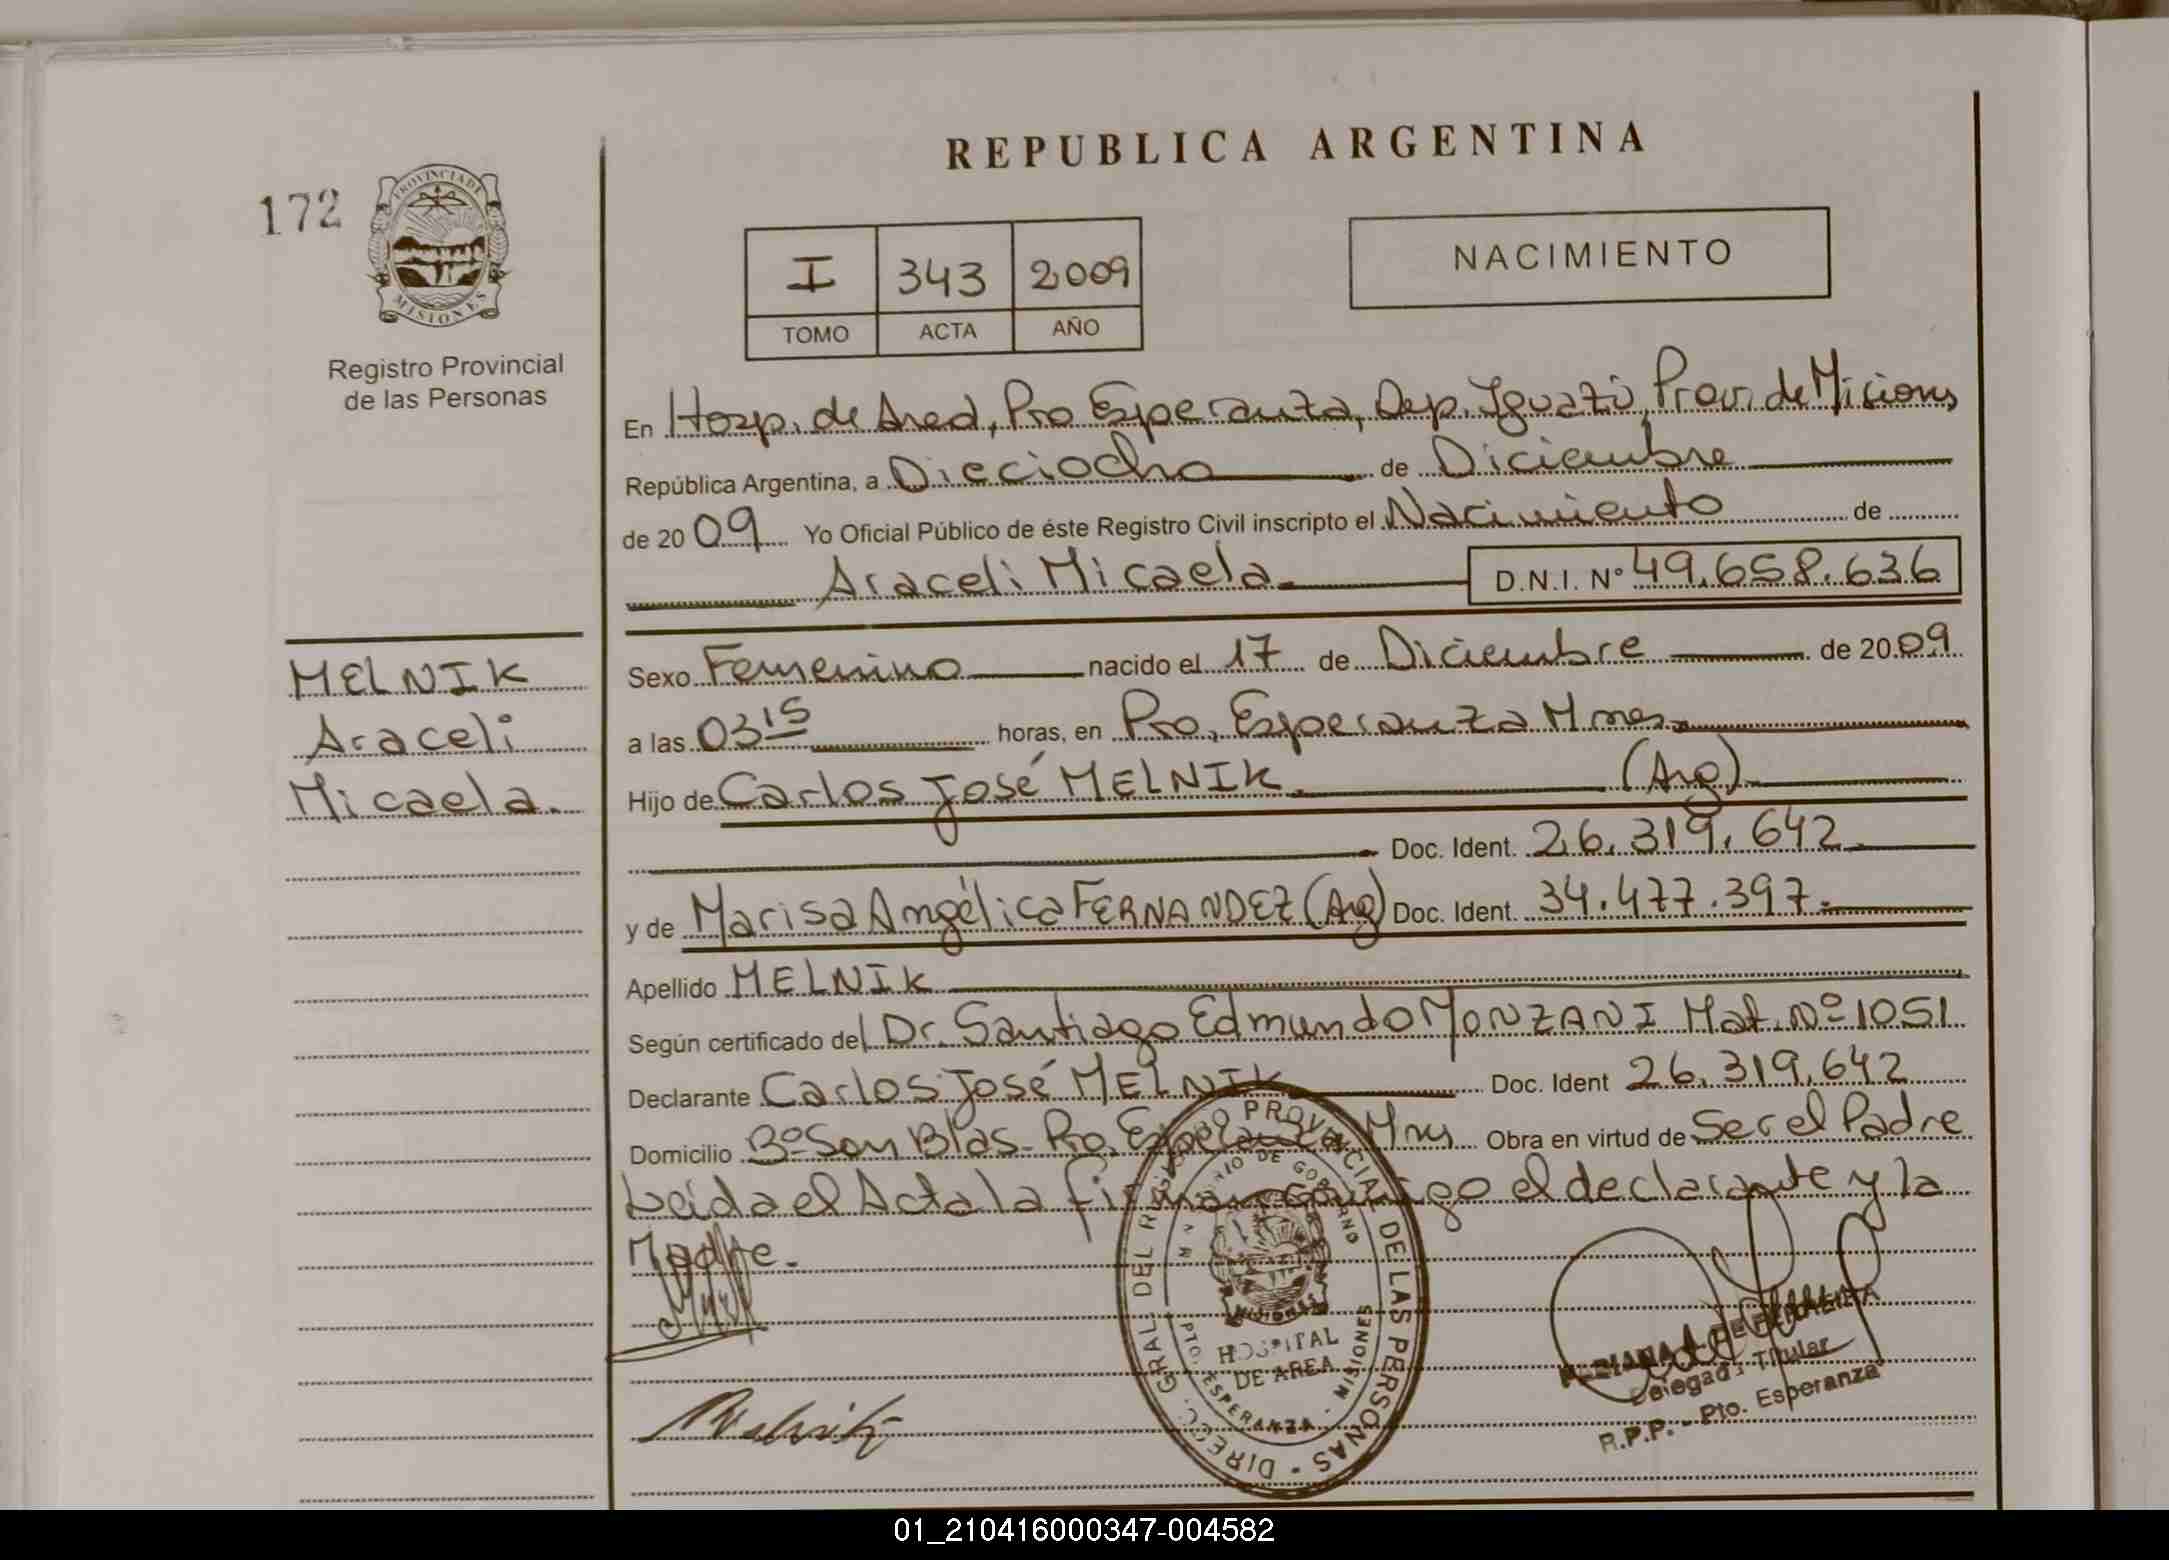 REPUBLICA ARGENTINA
172
PROVINCIA DE
MISIONES
Registro Provincial
de las Personas
I 343 2009
TOMO ACTA AÑO
NACIMIENTO
En Hosp. de Area, Pto Esperanza, Dep. Iguazú, Prov. de Misiones
República Argentina, a Dieciocho de Diciembre
de 2009 Yo Oficial Público de éste Registro Civil inscripto el Nacimiento de
Araceli Micaela. D.N.I. Nº 49.658.636
MELNIK
Araceli
Micaela.
Sexo Femenino nacido el 17 de Diciembre de 2009.
a las 03 15 horas, en Pto. Esperanza Mnes.
Hijo de Carlos José MELNIK. (Arg).
Doc. Ident. 26.319.642
y de Marisa Angélica FERNANDEZ (Arg) Doc. Ident. 34.477.397.
Apellido MELNIK
Según certificado del Dr. Santiago Edmundo MONZANI Mat. Nº 1051
Declarante Carlos José MELNIK Doc. Ident 26.319.642
Domicilio Bº San Blas - Pto. Esperanza Mnes Obra en virtud de Ser el Padre
Leida el Acta la firman conmigo el declarante y la
Madre.
DIRECC. GRAL. DEL REGISTRO PROVINCIAL DE LAS PERSONAS
MINISTERIO DE GOBIERNO
MISIONES
HOSPITAL
DE AREA
PTO. ESPERANZA - MISIONES
Melnik
Delegada Titular
R.P.P. - Pto. Esperanza
01_210416000347-004582